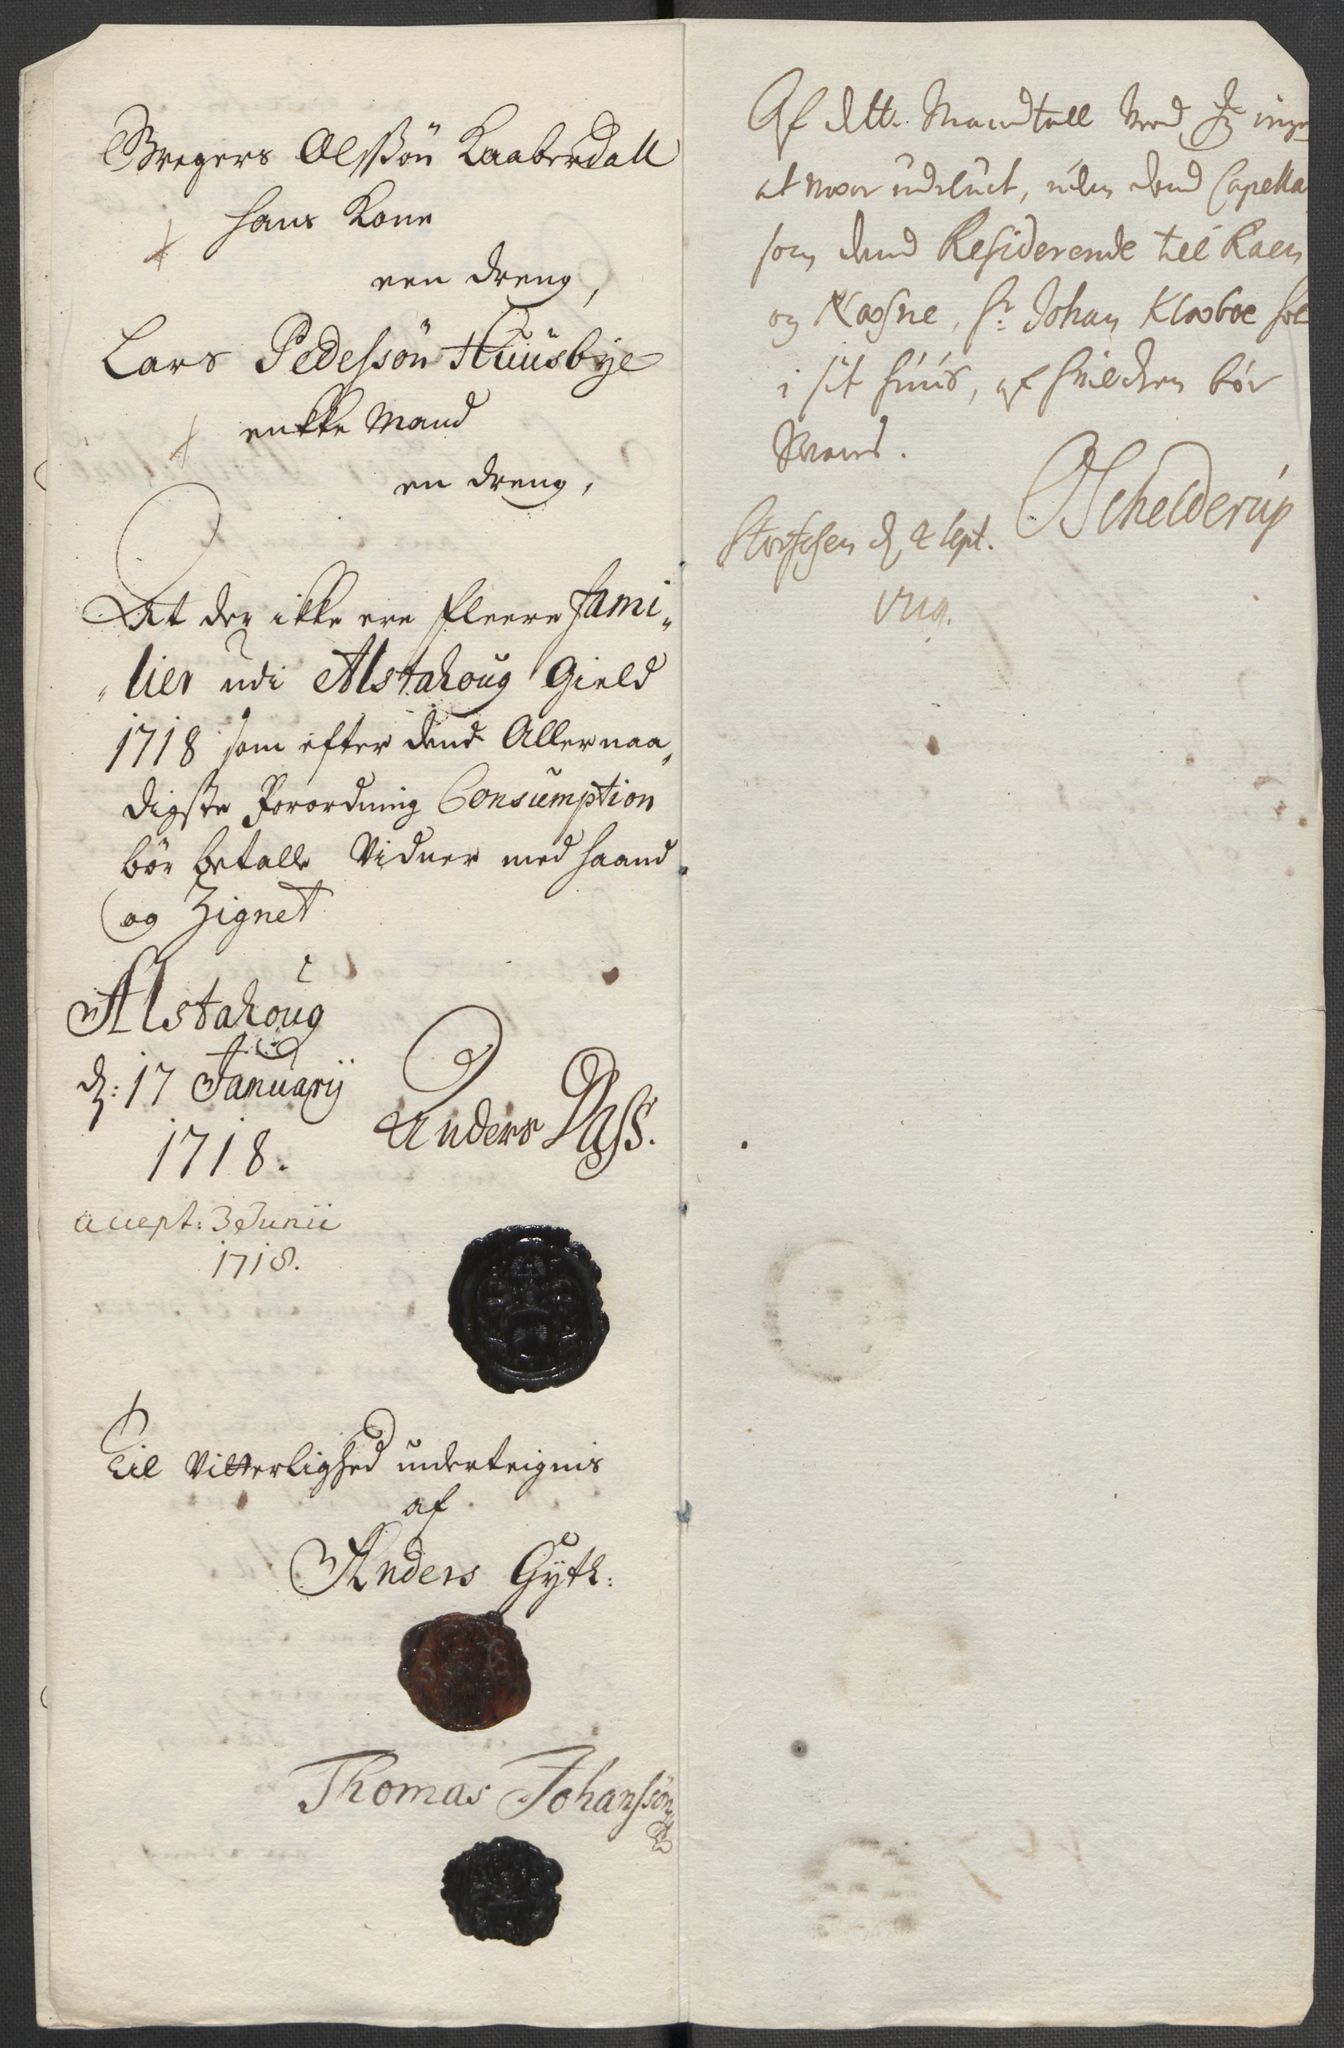 Gregers Olssön Kaaberdall
hans Kone
een dreng,
Lars Pedessön Huusbye
enkke Mand
en dreng,
At der ikke ere fleere fami„
„lier udi Alstahoug Gield
1718 som efter dend Allernaa„
digste Forordning Consumption
bör betalle Vidner med haand
og Zignet
Alstahoug
d: 17 Januarij
1718.
Anders Dass.
accept: 3 Junii
1718.
Til Vitterlighed underteignis
af
Anders Gyth:
Thomas Johanssön
Af dette Mandtall Veed Jeg inge
at være udeluct, uden dend Capella
som dend Residerende til Raen
og Næsne, Hr Johan Klæboe
i sit huus, af bör
Svares.
OSchelderup
d 2 Sept.
1719.